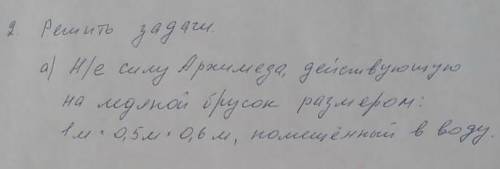 2. Решить задачи.
а) Н/е силу Архимеда, действующую
на медной брусок размером:
1м · 0,5м · 0,6м, помещённый в воду.